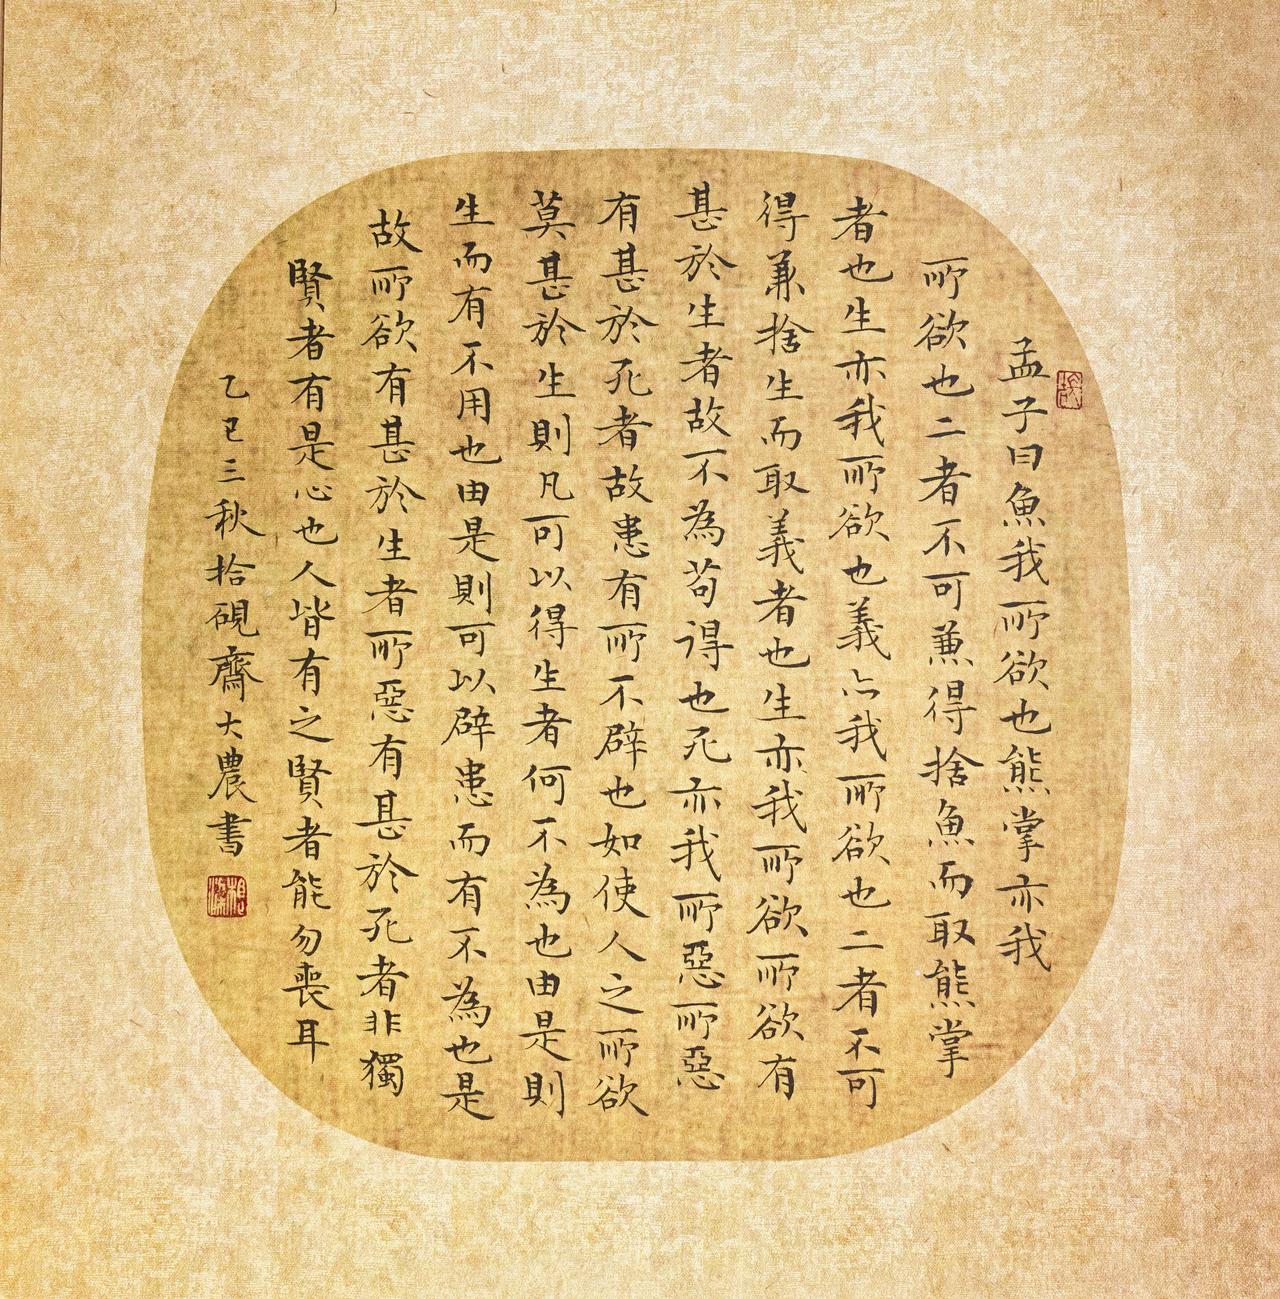 孟子曰魚我所欲也熊掌亦我
所欲也二者不可兼得捨魚而取熊掌
者也生亦我所欲也義亦我所欲也二者不可
得兼捨生而取義者也生亦我所欲所欲有
甚於生者故不為苟得也死亦我所惡所惡
有甚於死者故患有所不辟也如使人之所欲
莫甚於生則凡可以得生者何不為也由是則
生而有不用也由是則可以辟患而有不為也是
故所欲有甚於生者所惡有甚於死者非獨
賢者有是心也人皆有之賢者能勿喪耳
乙巳三秋拾硯齋大農書